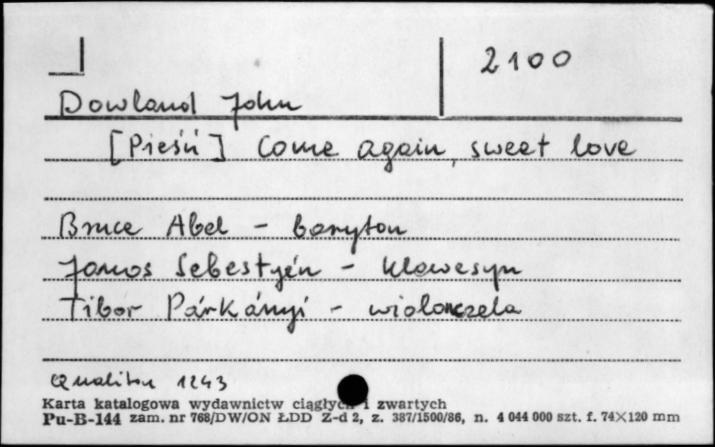 2100
Dowland John
[Pieśń] Come again, sweet love
Bruce Abel - baryton
Janos Sebestyén - klawesyn
Tibor Párkányi - wiolonczela
Qualiton 1243
Karta katalogowa wydawnictw ciągłych i zwartych
Pu-B-144 zam. nr 768/DW/ON ŁDD Z-d 2, z. 387/1500/86, n. 4 044 000 szt. f. 74×120 mm